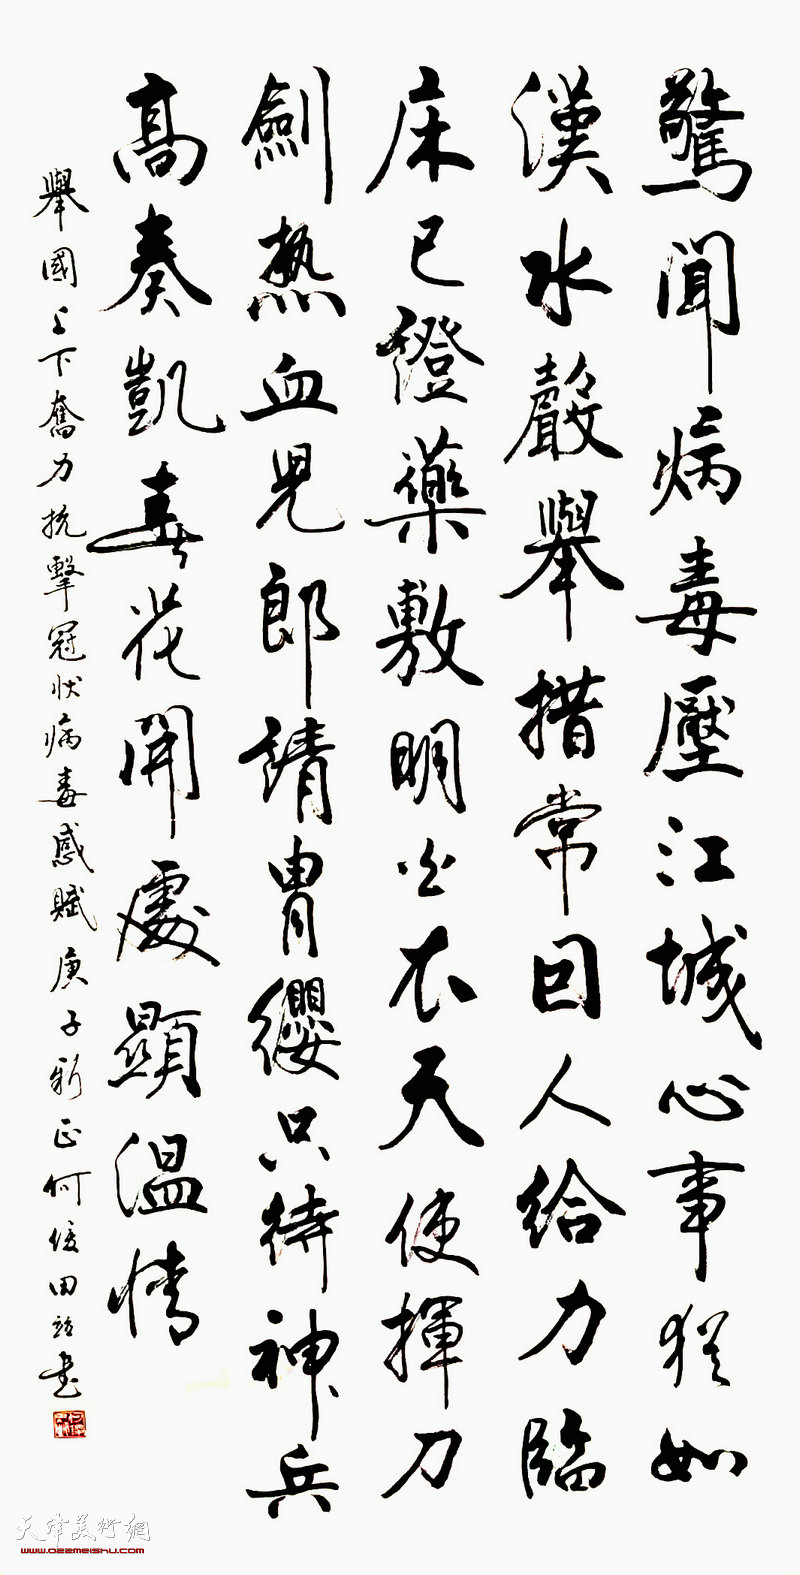 驚聞病毒壓江城心事猶如
漢水聲舉措常回人給力臨
床已證藥敷明白衣天使揮刀
劍熱血兒郎請胄纓只待神兵
高奏凱春花開處顯溫情
舉國上下奮力抗擊冠狀病毒感賦庚子新正何俊田並書
天津美術網
www.022meishu.com